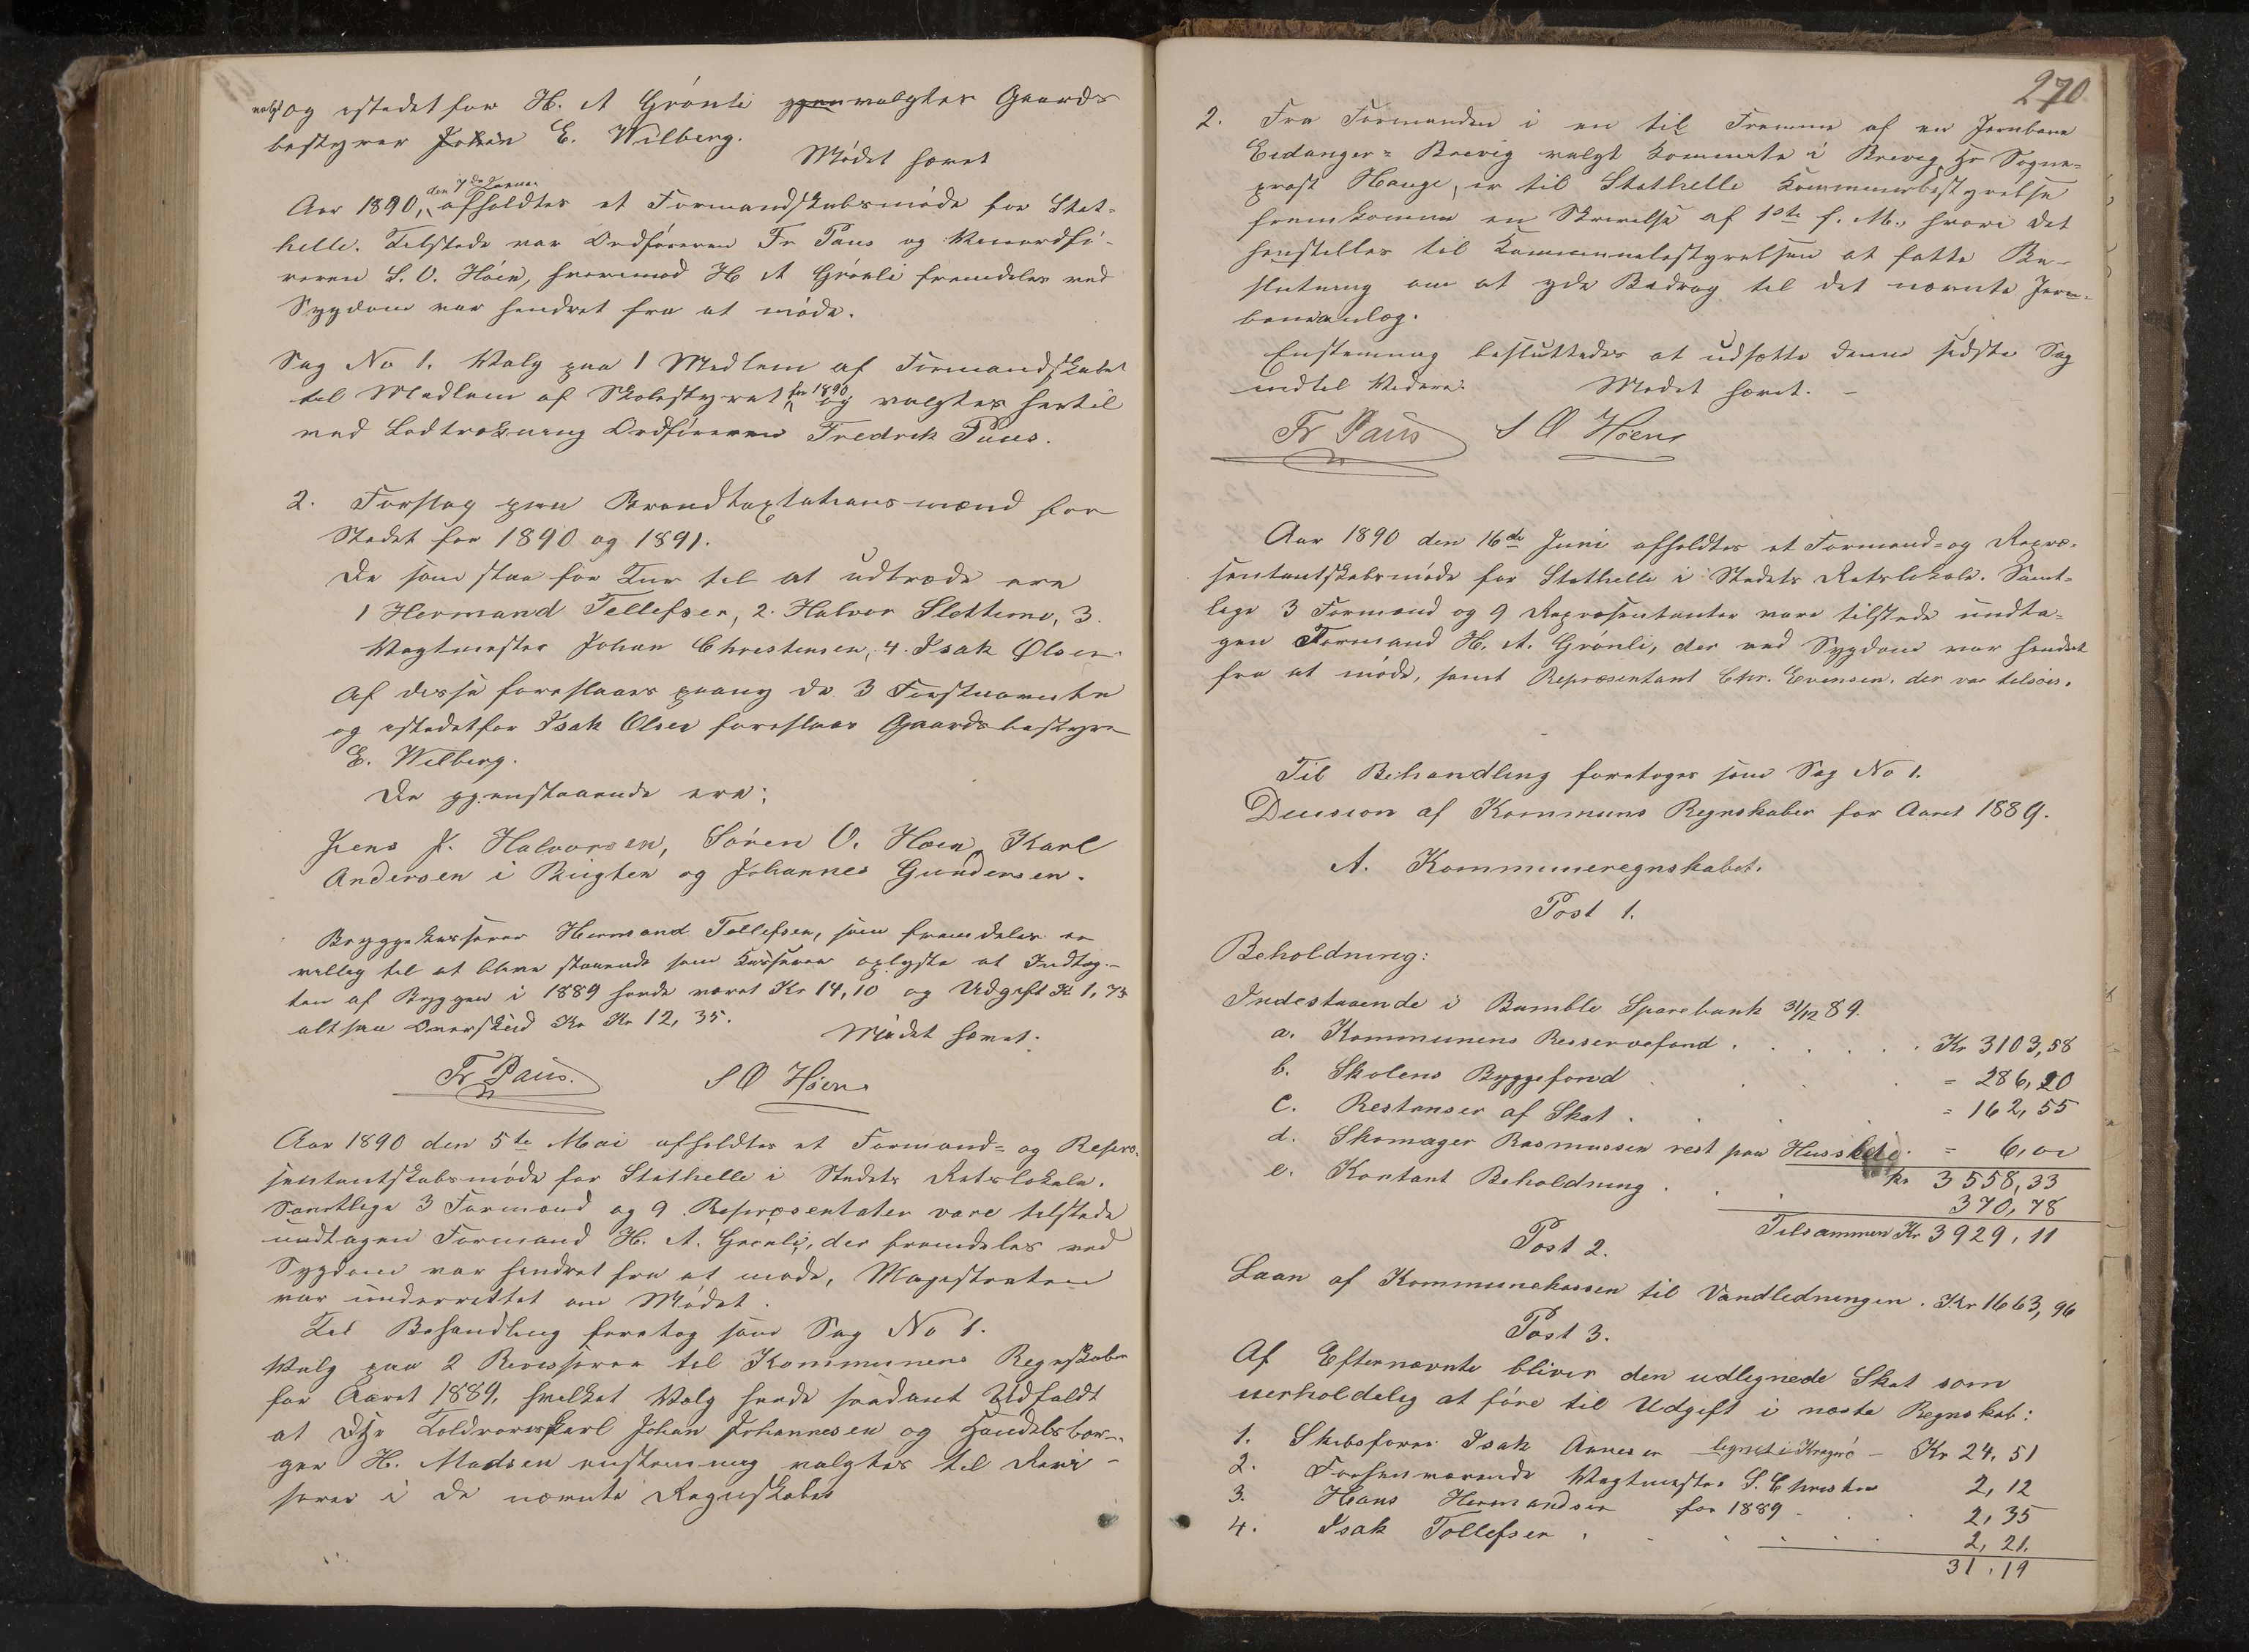 valgt og istedetfor H. A Grönli gjenvalgtes Gaards
bestyrer Johan E. Wilberg.
Mödet hævet
den 7de Januar
Aar 1890, afholdtes et Formandskabsmöde for Stat-
helle. Tilstede var Ordföreren Fr Paus og Viceordfö-
reren S. O. Höen, hvorimod H A Grönli fremdeles ved
Sygdom var hindret fra at möde.
Sag No 1. Valg paa 1 Medlem af Formandskabet
til Medlem af Skolestyret for 1890 og valgtes hertil
ved Lodtrækning Ordföreren Fredrik Paus.
2. Forslag paa Brandtaxtationsmænd for
Stedet for 1890 og 1891.
De som staa for Tur til at udtræde ere
1 Hermand Tellefsen, 2. Halvor Slottene, 3.
Vagtmester Johan Christensen, 4. Isak Olsen.
Af disse foreslaaes paany de 3 Förstnævnte
og istedetfor Isak Olsen foreslaaes Gaardsbestyrer
E. Wilberg.
De gjenstaaende ere:
Jens J. Halvorsen, Sören O. Höen, Karl
Andersen i Bugten og Johannes Gundersen.
Bryggekasserer Hermand Tellefsen, som fremdeles er
villig til at blive staaende som Kasserer oplyste at Indtæg-
ten af Bryggen i 1889 havde været Kr 14,10 og Udgift Kr 1,75
altsaa Overskud Kr Kr 12,35.
Mödet hævet.
Fr Paus. S O Höen
Aar 1890 den 5te Mai afholdtes et Formand- og Repræ-
sentantskabsmöde for Stathelle i Stedets Retslokale.
Samtlige 3 Formænd og 9 Repræsentater vare tilstede
undtagen Formand H. A. Grönli, der fremdeles ved
Sygdom var hindret fra at möde, Magistraten
var underrettet om Mödet.
Til Behandling foretog som Sag No 1.
Valg paa 2 Revisorer til Kommunens Regnskaber
for Aaret 1889, hvilket Valg havde saadant Udfaldt
at DHr Toldroerskarl Johan Johannesen og Handelsbor-
ger H. Madsen enstemmig valgtes til Revi-
sorer i de nævnte Regnskaber
270
2. Fra Formanden i en til Fremme af en Jernbane
Eidanger-Brevig valgt Kommite i Brevig Hr Sogne-
prest Hauge, er til Stathelle Kommunebestyrelse
fremkommen en Skrivelse af 1ste f. M., hvori det
henstilles til Kommunebestyrelsen at fatte Be-
slutning om at yde Bidrag til det nævnte Jern-
baneanlæg.
Enstemmig besluttedes at udsætte denne sidste Sag
indtil Videre. Mödet hævet. -
Fr Paus S O Höen
Aar 1890 den 16de Juni afholdtes et Formand- og Repræ-
sentantskabsmöde for Stathelle i Stedets Retslokale. Samt-
lige 3 Formænd og 9 Repræsentanter vare tilstede undta-
gen Formand H. A. Grönli, der ved Sygdom var hindret
fra at möde, samt Repræsentant Chr. Evensen, der var tilsös.
Til Behandling foretoges som Sag No 1.
Decision af Kommuns Regnskaber for Aaret 1889.
A. Kommuneregnskabet.
Post 1.
Beholdning:
Indestaaende i Bamble Sparebank 31/12 89.
a. Kommunens Reservefond . . . . . Kr 3103,58
b. Skolens Byggefond . . . . = 286,20
c. Restanser af Skat . . . . = 162,55
d. Skomager Rasmussen rest paa Husskat . = 6,00
Kr 3558,33
e. Kontant Beholdning . . . 370,78
Tilsammen Kr 3929,11
Post 2.
Laan af Kommunekassen til Vandledningen. Kr 1663,96
Post 3.
Af Efternævnte bliver den udlignede Skat som
uerholdelig at före til Udgift i næste Regnskab:
1. Skibsförer Isak Annesen lignet i Kragerö - Kr 24,51
2. Forhenværende Vagtmester S. Christen 2,12
3. Hans Hermandsen for 1889 . . . 2,35
4. Isak Tollefsen . . . . . . 2,21.
31,19